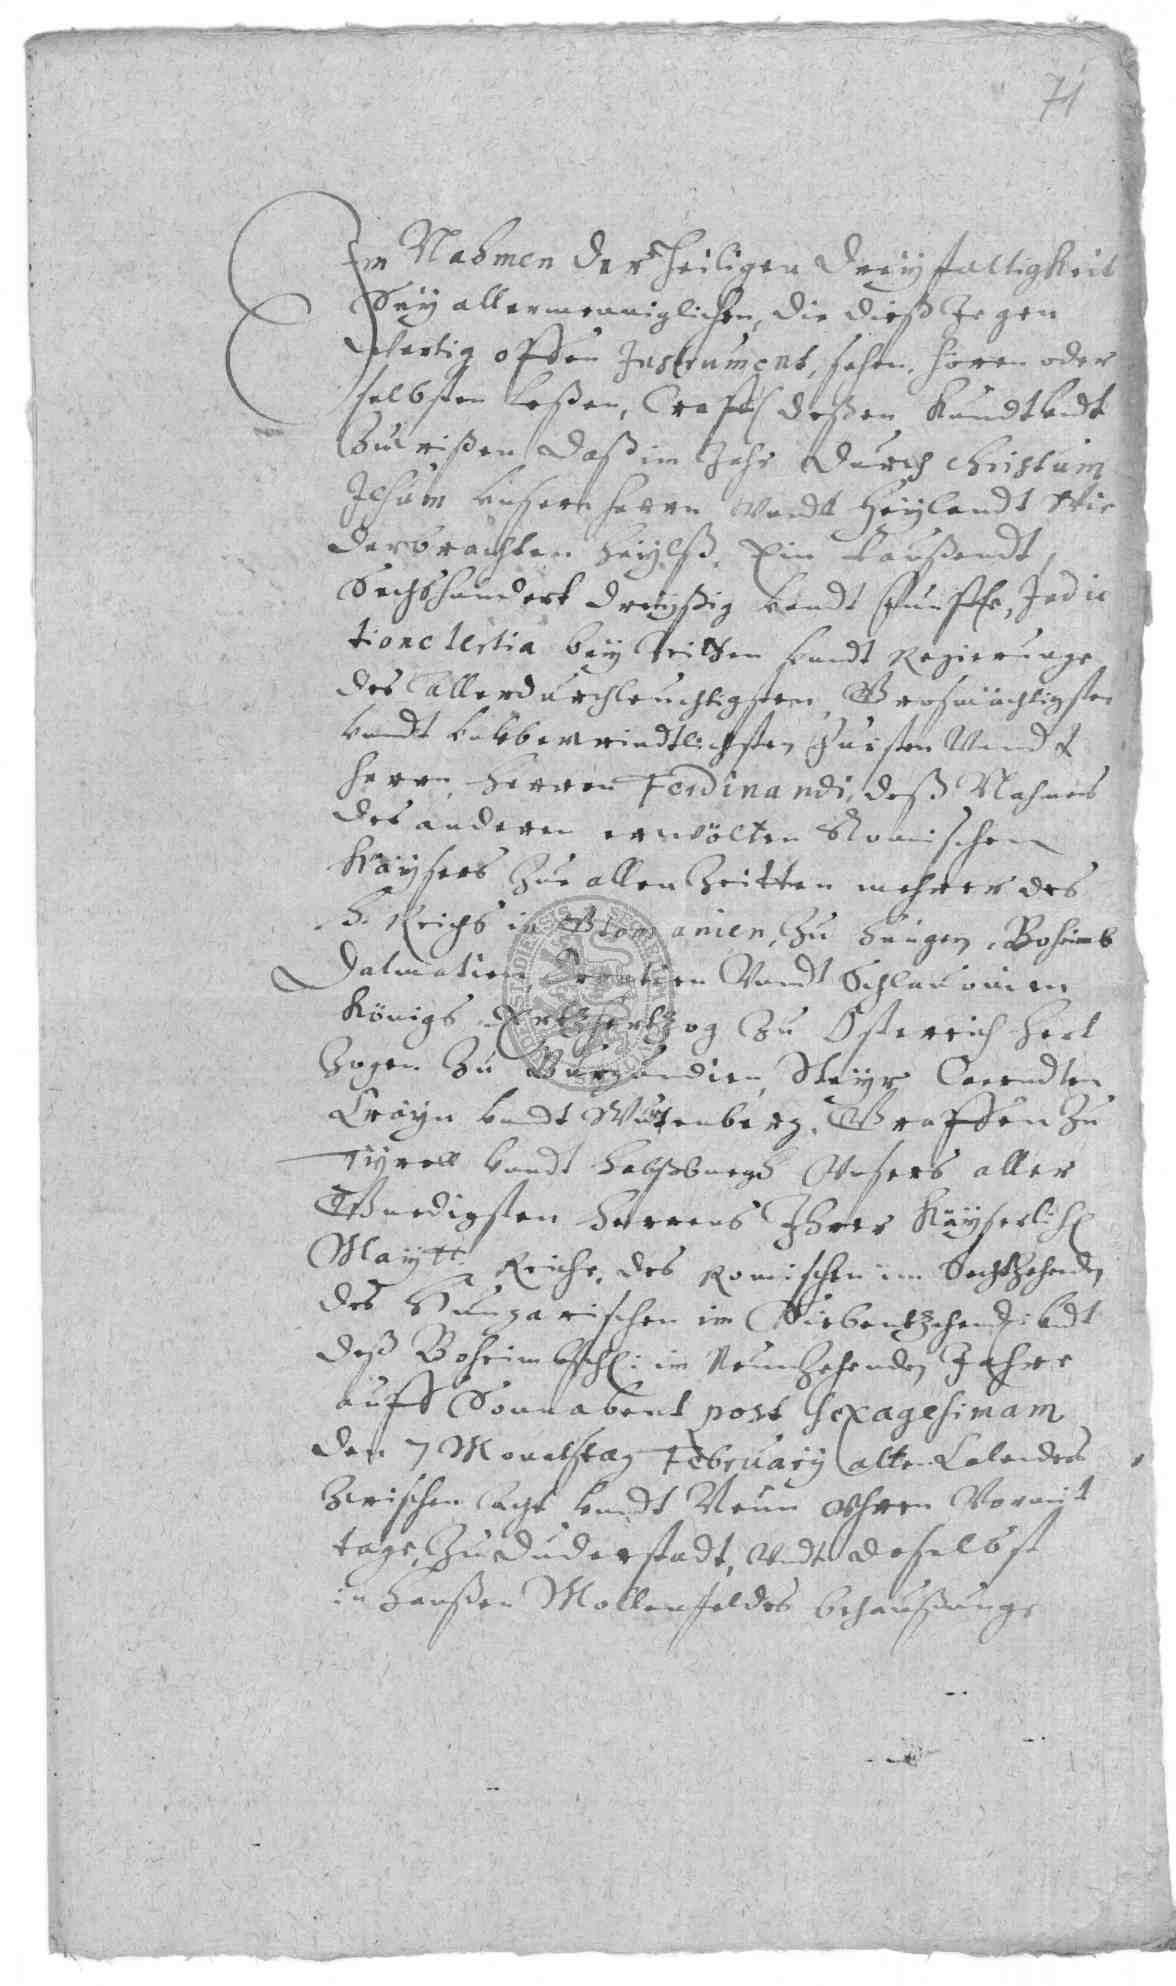 71
Im Nahmen der heiligen Dreyfaltigkeit
Sey allermenniglichen, die dieß Jegen
Wertig offen Instrument, sehen, hören oder
selbsten leßen, Crafft deßen kundt undt
zu wißen daß im Jahr durch Christum
Jesum unsern Herrn Vndt Heylandt Wie
derbrachten Heylß, Ein taußendt,
Sechshundert dreyßig vndt funffe, Indic
tione tertia bey Zeitten vndt Regierunge
des Allerdurchleuchtigsten, Großmächtigsten
vndt vnüberwindtlichsten Fürsten Vndt
Herrn, Herren Ferdinandi, deß Nahmes
des anderen erwölten Romischen
Kaysers zue allen Zeitten mehrer des
H. Reichs in Germanien, zu Hungern, Boheimb
Dalmatien, Croatien Vndt Schlauonien
Königs, Ertzhertzog zu Osterreich Hert
zogen zu Burgundien, Steyr Caerndten
Crayn vndt Wirtenberg, Graffen zu
Tyroll vndt Habsburgk Vnsers aller
Gnedigsten Herrens Ihrer Kayserlich
Maytt. Reiche, des Romischen im Sechtzehenden
des Hungarischen im Siebentzehenden vndt
deß Boheimbsch: im Neunzehenden Jahre
auff Sonnabent post Sexagesimam
den 7 Monatstag February alten Calenders
Zwischen Acht vndt Neun Vhren Vormit
tage, zu Duderstadt, Vndt daselbst
in Hanßen Mollenfeldes behaußunge